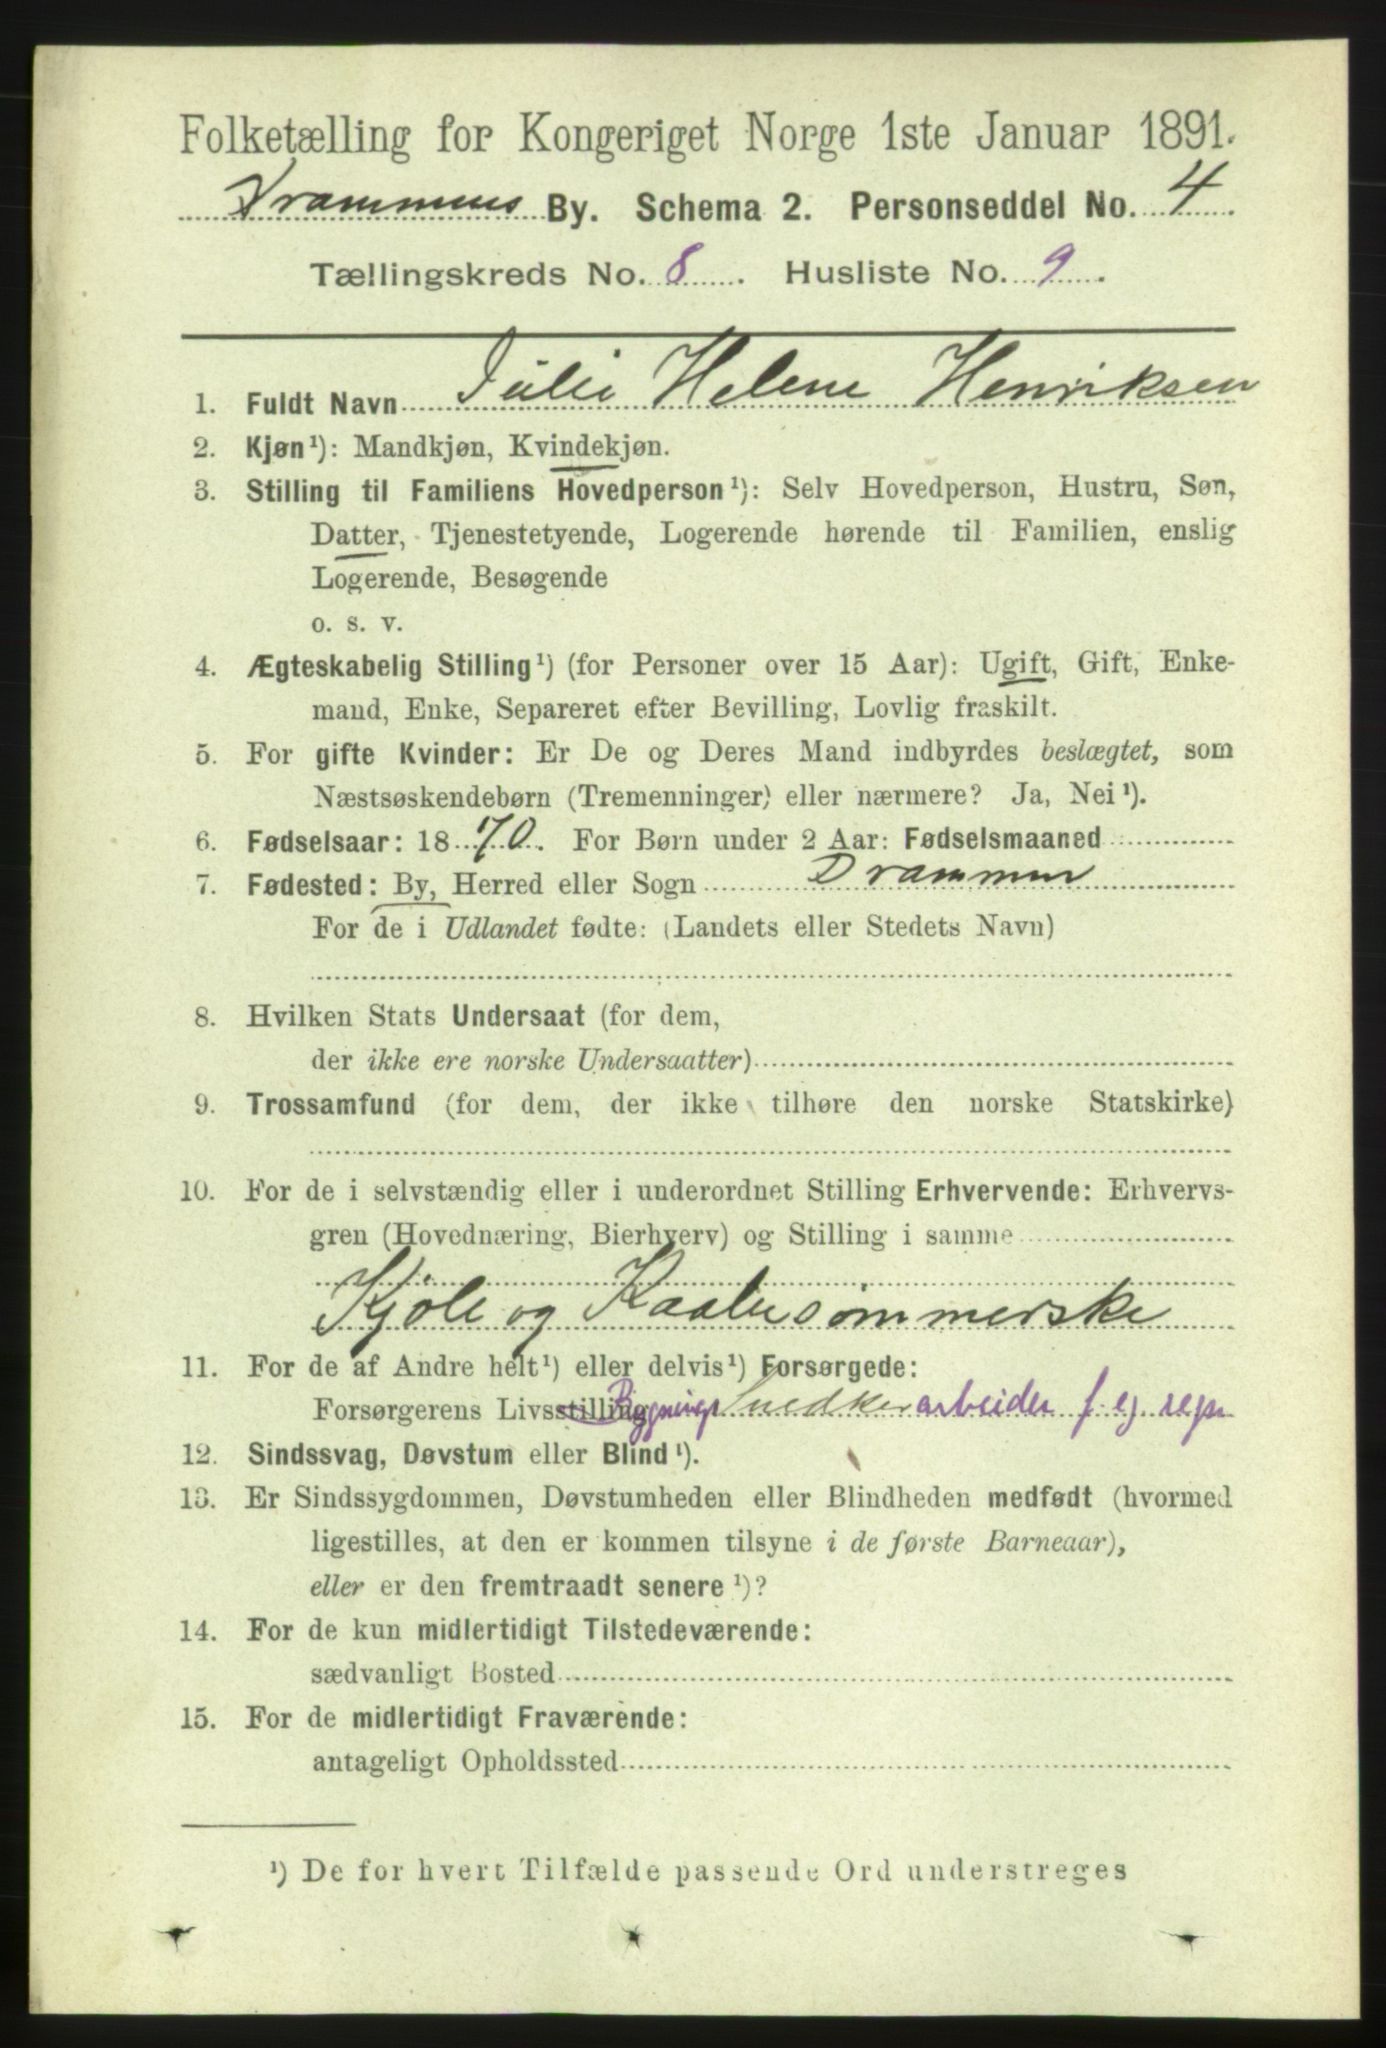 Folketælling for Kongeriget Norge 1ste Januar 1891.
Drammens By. Schema 2. Personseddel No. 4
Tællingskreds No. 8. Husliste No. 9.
1. Fuldt Navn Julie Helene Henriksen
2. Kjøn¹): Mandkjøn, Kvindekjøn.
3. Stilling til Familiens Hovedperson¹): Selv Hovedperson, Hustru, Søn,
Datter, Tjenestetyende, Logerende hørende til Familien, enslig
Logerende, Besøgende
o. s. v.
4. Ægteskabelig Stilling¹) (for Personer over 15 Aar): Ugift, Gift, Enke-
mand, Enke, Separeret efter Bevilling, Lovlig fraskilt.
5. For gifte Kvinder: Er De og Deres Mand indbyrdes beslægtet, som
Næstsøskendebørn (Tremenninger) eller nærmere? Ja, Nei¹).
6. Fødselsaar: 1870. For Børn under 2 Aar: Fødselsmaaned
7. Fødested: By, Herred eller Sogn Drammen
For de i Udlandet fødte: (Landets eller Stedets Navn)
8. Hvilken Stats Undersaat (for dem,
der ikke ere norske Undersaatter)
9. Trossamfund (for dem, der ikke tilhøre den norske Statskirke)
10. For de i selvstændig eller i underordnet Stilling Erhvervende: Erhvervs-
gren (Hovednæring, Bierhverv) og Stilling i samme
Kjole og Kaabesømmerske
11. For de af Andre helt¹) eller delvis¹) Forsørgede:
Forsørgerens Livsstilling Bygnings Snedker arbeider f. eg. regn
12. Sindssvag, Døvstum eller Blind¹).
13. Er Sindssygdommen, Døvstumheden eller Blindheden medfødt (hvormed
ligestilles, at den er kommen tilsyne i de første Barneaar),
eller er den fremtraadt senere¹)?
14. For de kun midlertidigt Tilstedeværende:
sædvanligt Bosted
15. For de midlertidigt Fraværende:
antageligt Opholdssted
¹) De for hvert Tilfælde passende Ord understreges